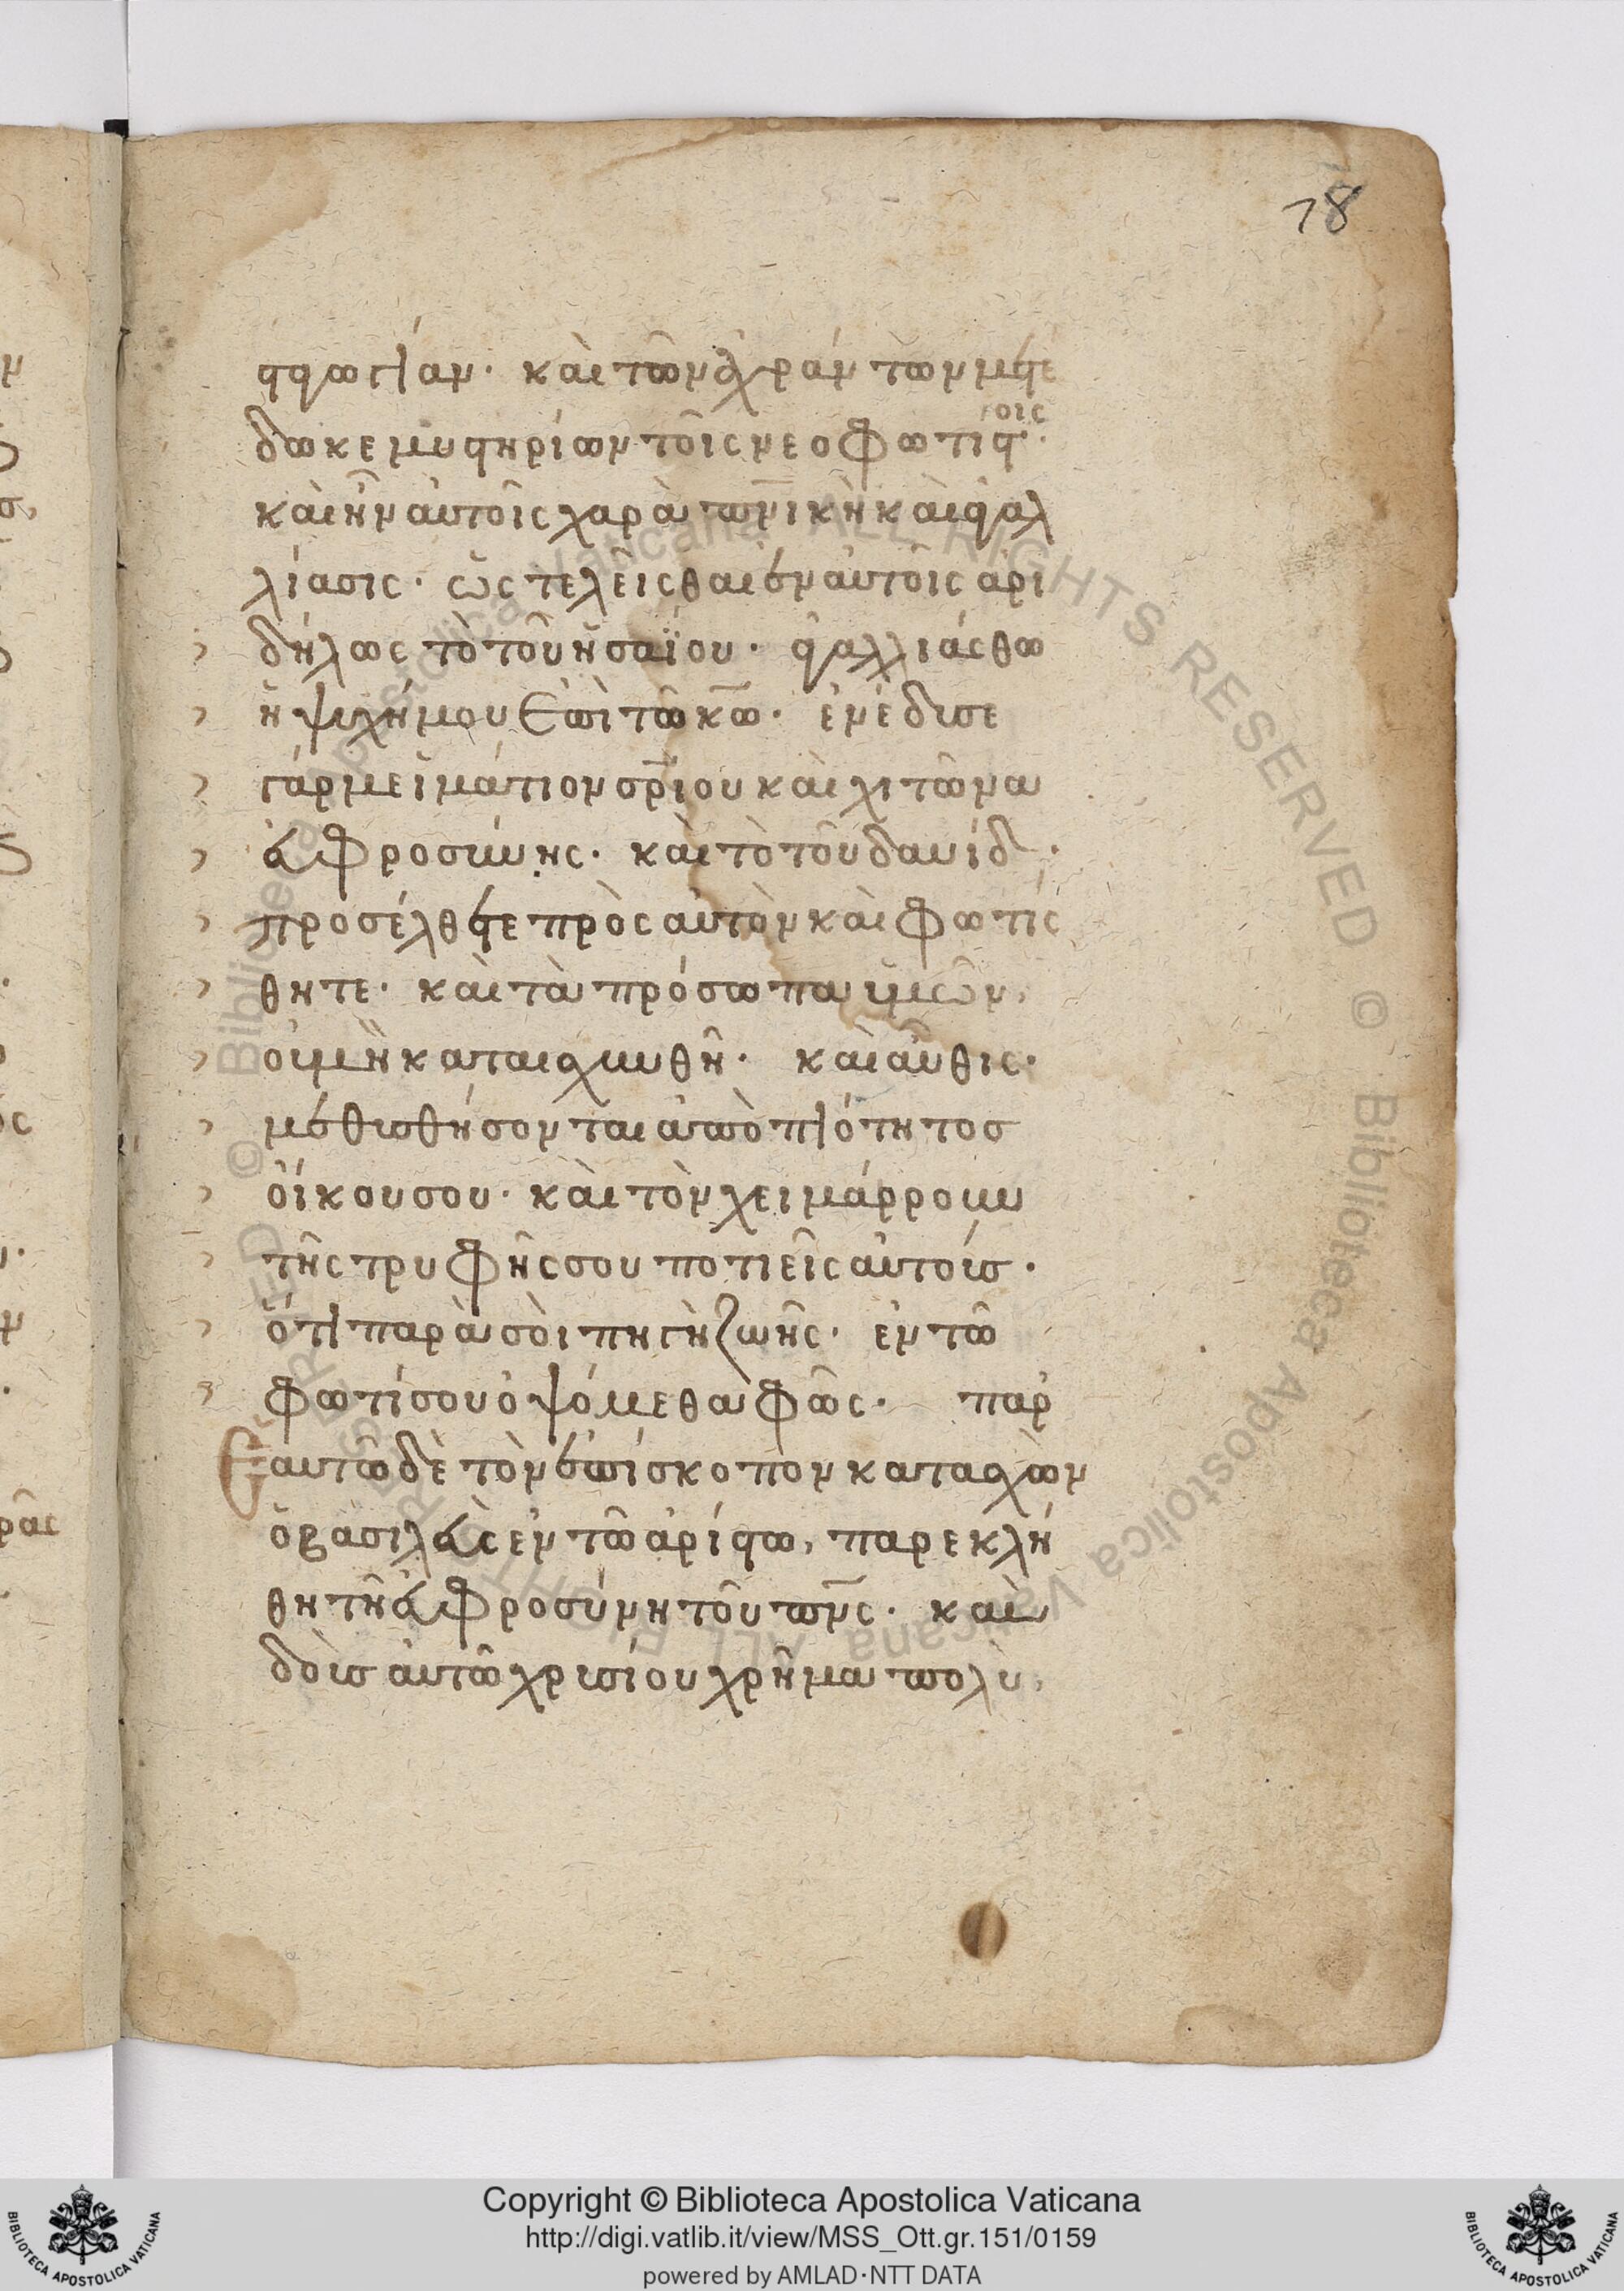 78
ηγωγίαν· καὶ τῶν ἀχράντων μετέ
δωκε μυστηρίων τοῖς νεοφωτίστοις·
καὶ ἦν αὐτοῖς χαρὰ πνικὴ καὶ ἀγαλ
λίασις· ὡς τελεῖσθαι ἐν αὐτοῖς ἀρι
δήλως τὸ τοῦ ἡσαΐου· ἀγαλλιάσθω
ἡ ψυχή μου ἐπὶ τῶ κω· ἐνέδυσε
γάρ με ἱμάτιον σρίου καὶ χιτῶνα
εὐφροσύνης· καὶ τὸ τοῦ δαυίδ·
προσέλθετε πρὸς αὐτὸν καὶ φωτίσ
θητε· καὶ τὰ πρόσωπα ὑμῶν,
οὐ μὴ καταισχυνθῆ· καὶ αὖθις·
μεθυσθήσονται ἀπὸ πιότητος
οἴκου σου· καὶ τὸν χειμάρρουν
τῆς τρυφῆς σου ποτιεῖς αὐτούς·
ὅτι παρὰ σοὶ πηγὴ ζωῆς· ἐν τῶ
φωτί σου ὀψόμεθα φῶς· παρ
Ἑαυτῶ δὲ τὸν ἐπίσκοπον κατασχὼν
ὁ βασιλεὺς ἐν τῶ ἀρίστω, παρεκλή
θη τῆ εὐφροσύνη τοῦ πνς· καὶ
δοὺς αὐτῶ χρυσίου χρῆμα πολὺ,
Copyright © Biblioteca Apostolica Vaticana
http://digi.vatlib.it/view/MSS_Ott.gr.151/0159
powered by AMLAD·NTT DATA
BIBLIOTECA APOSTOLICA VATICANA
BIBLIOTECA APOSTOLICA VATICANA
© Biblioteca Apostolica Vaticana ALL RIGHTS RESERVED © Biblioteca Apostolica Vaticana ALL RIGHTS RESERVED